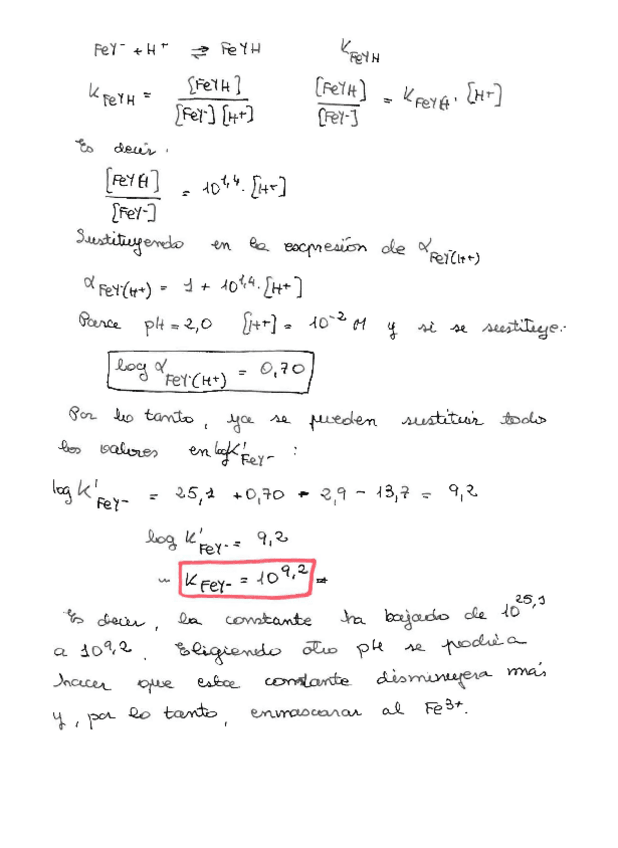 FeY⁻ + H⁺ ⇌ FeYH K_FeYH
K_FeYH = [FeYH] / [FeY⁻][H⁺] [FeYH] / [FeY⁻] = K_FeYH · [H⁺]
Es decir:
[FeYH] / [FeY⁻] = 10^1,4 · [H⁺]
Sustituyendo en la expresión de α_FeY⁻(H⁺)
α_FeY⁻(H⁺) = 1 + 10^1,4 · [H⁺]
Para pH = 2,0 [H⁺] = 10^-2 M y si se sustituye:
log α_FeY⁻(H⁺) = 0,70
Por lo tanto, ya se pueden sustituir todo
los valores en log K'_FeY⁻ :
log K'_FeY⁻ = 25,1 + 0,70 - 2,9 - 13,7 = 9,2
log K'_FeY⁻ = 9,2
K_FeY⁻ = 10^9,2
Es decir, la constante ha bajado de 10^25,1
a 10^9,2. Eligiendo otro pH se podría
hacer que esta constante disminuyera más
y, por lo tanto, enmascarar al Fe³⁺.